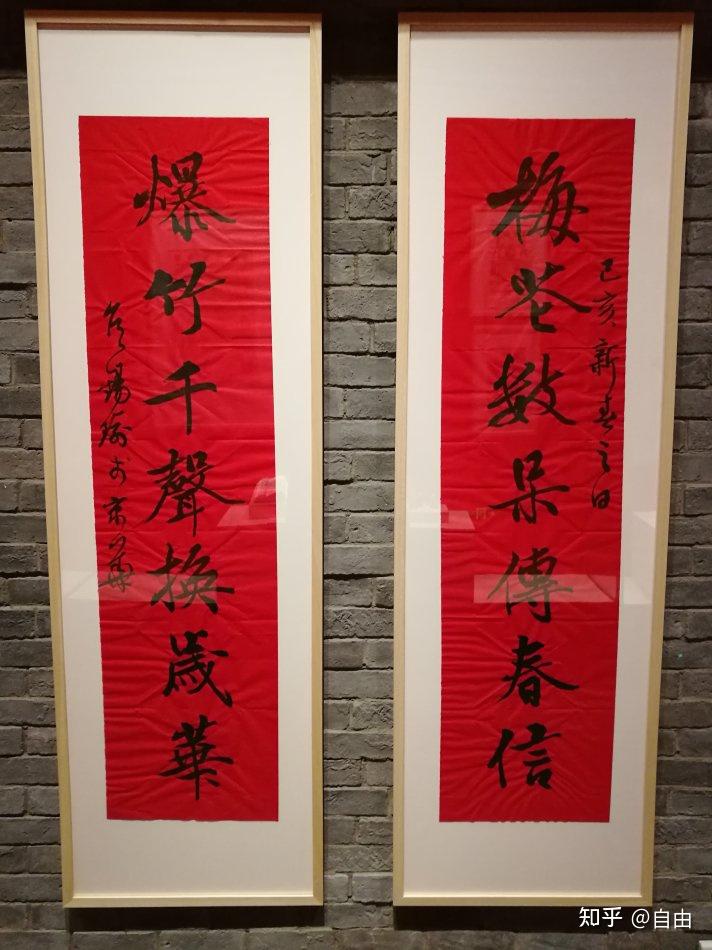 己亥新春之日
梅花数朵傳春信
爆竹千聲換歲華
於京華
知乎 @自由